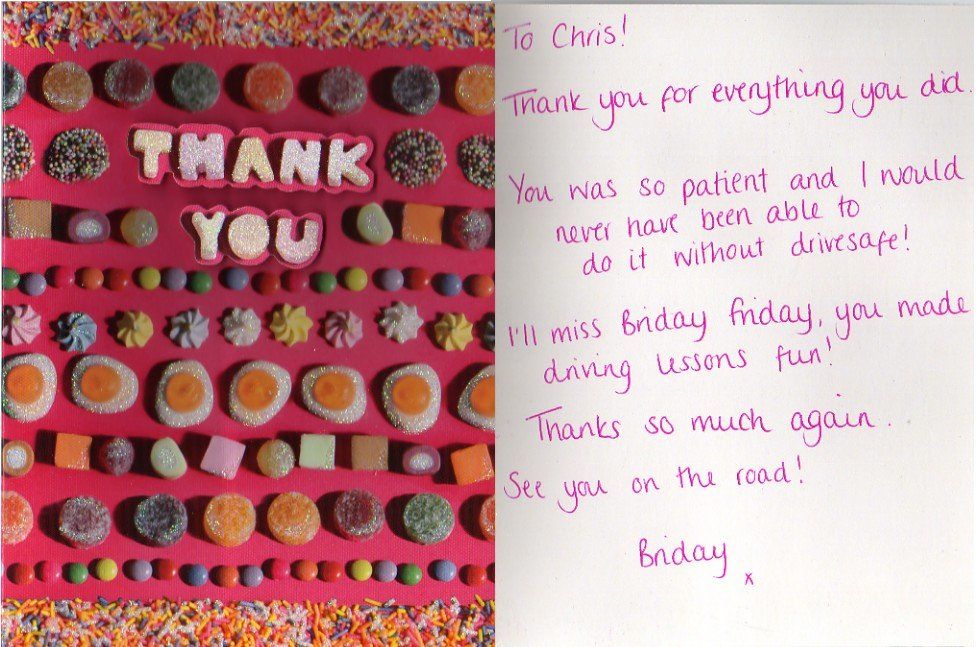 THANK
YOU
To Chris!
Thank you for everything you did.
You was so patient and I would
never have been able to
do it without drivesafe!
I'll miss Briday friday, you made
driving lessons fun!
Thanks so much again.
See you on the road!
Briday
x